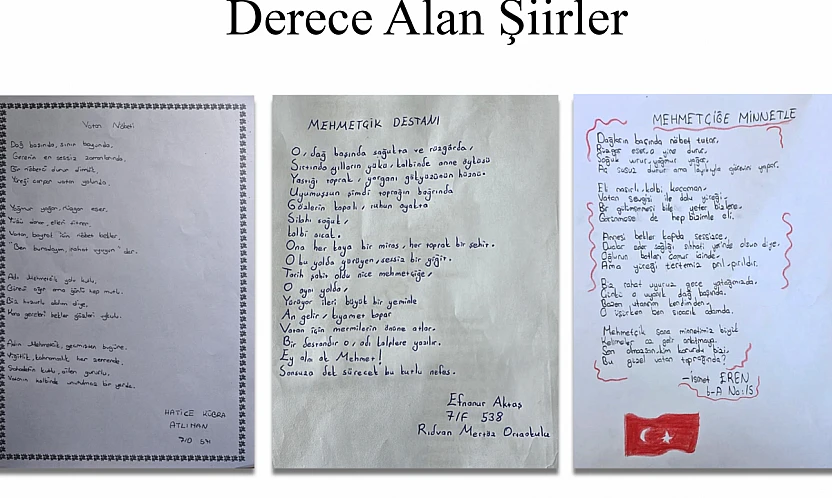 Derece Alan Şiirler
Vatan Nöbeti
Dağ başında, sınır boyunda,
Gecenin en sessiz zamanlarında,
Bir nöbetçi durur dimdik,
Yüreği çarpan vatan yolunda.
Yağmur yağar, rüzgar eser,
Vatan, bayrak için nöbet bekler,
"Ben buradayım, rahat uyuyun" der.
Adı Mehmetçik, yolu kutlu,
Görevi ağır ama gönlü hep mutlu.
Adın Mehmetçik, geçmişten bugüne,
Yiğitlik, kahramanlık her seferinde,
HATİCE KÜBRA
ATLIHAN
7/D 541
MEHMETÇİK DESTANI
O, dağ başında soğukta ve rüzgarda,
Sırtında yılların yükü, kalbinde anne uykusu
Yastığı toprak, yorganı gökyüzünün hüznü.
Uyumuşsun şimdi toprağın bağrında
Gözlerin kapalı, ruhun ayakta
Silahı soğuk,
kalbi sıcak.
Ona her kaya bir miras, her toprak bir şehir.
O bu yolda yürüyen, sessiz bir yiğit.
Tarih şahit oldu nice mehmetçiğe,
O aynı yolda,
Yürüyor ileri büyük bir yeminle
An gelir, kıyamet kopar
Vatan için mermilerin önüne atlar.
Bir destandır o, adı kalplere yazılır.
Ey ala ok Mehmet!
Sonsuza dek sürecek bu kutlu nefes.
Efnanur Aktaş
7/F 538
Rıdvan Mertöz Ortaokulu
MEHMETÇİĞE MİNNETLE
Dağların başında nöbet tutar,
Rüzgar eser, o yine durur.
Soğuk vurur, yağmur yağar,
Aç susuz durur ama layıkıyla görevini yapar.
Eli nasırlı, kalbi kocaman,
Vatan sevgisi ile dolu yüreği.
Bir gülümsemesi bile yeter bizlere,
Görünmese de hep bizimle eli.
Annesi bekler kapıda sessizce,
Dualar eder sağlığı sıhhati yerinde olsun diye.
Oğlunun botları çamur içinde,
Ama yüreği tertemiz pırıl pırıldı.
Biz rahat uyuruz gece yatağımızda,
Çünkü o uyanık dağ başında.
Bazen utanırım kendimden,
O üşürken ben sıcacık odamda.
Mehmetçik sana minnetimiz büyük
Kelimeler az gelir anlatmaya.
Sen olmazsan, kim korurdu bizi,
Bu güzel vatan toprağında?
İsmet EREN
6-A No:15